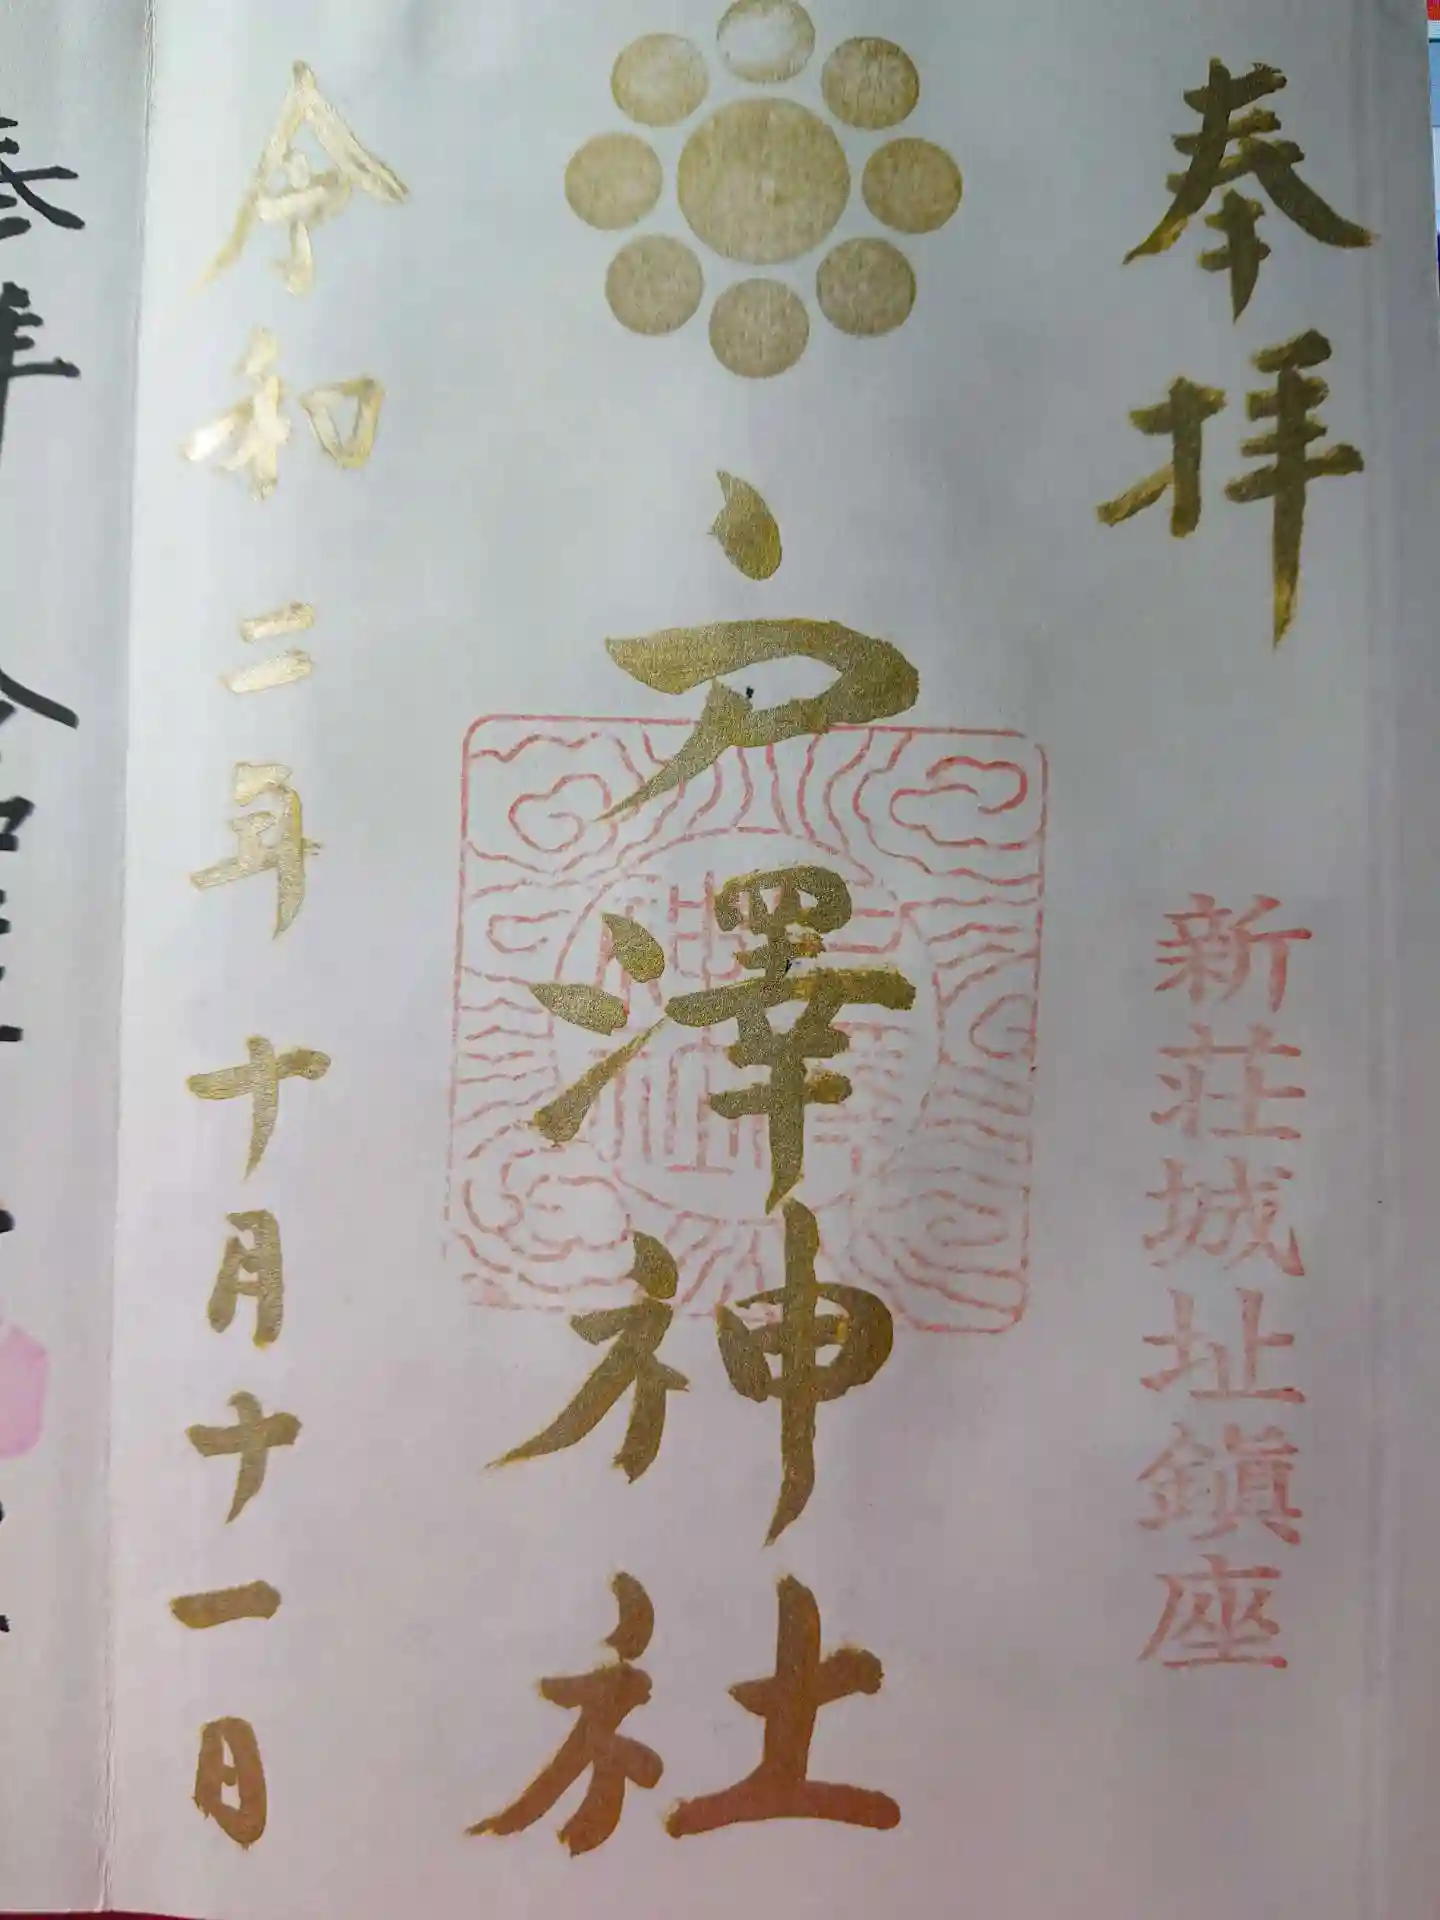 奉拝
新荘城址鎮座
戸澤神社
令和二年十月十一日
奉拝